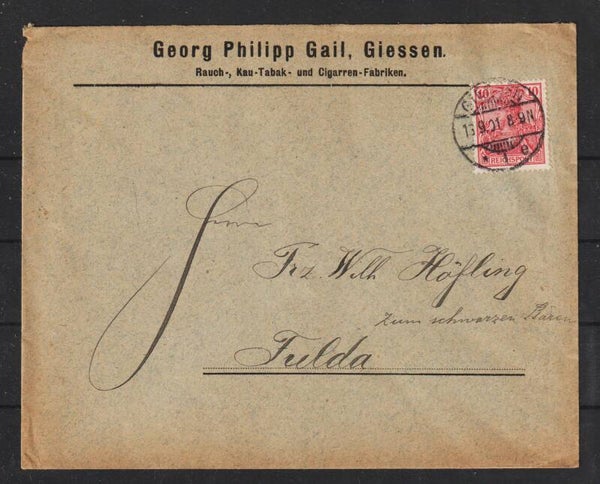 Georg Philipp Gail, Giessen.
Rauch-, Kau-Tabak- und Cigarren-Fabriken.
10 10
GIESSEN
13.9.01 8-9N
* 1 e
REICHSPOST
Herrn
Frz. Wilh Höfling
zum schwarzen Bären
Fulda